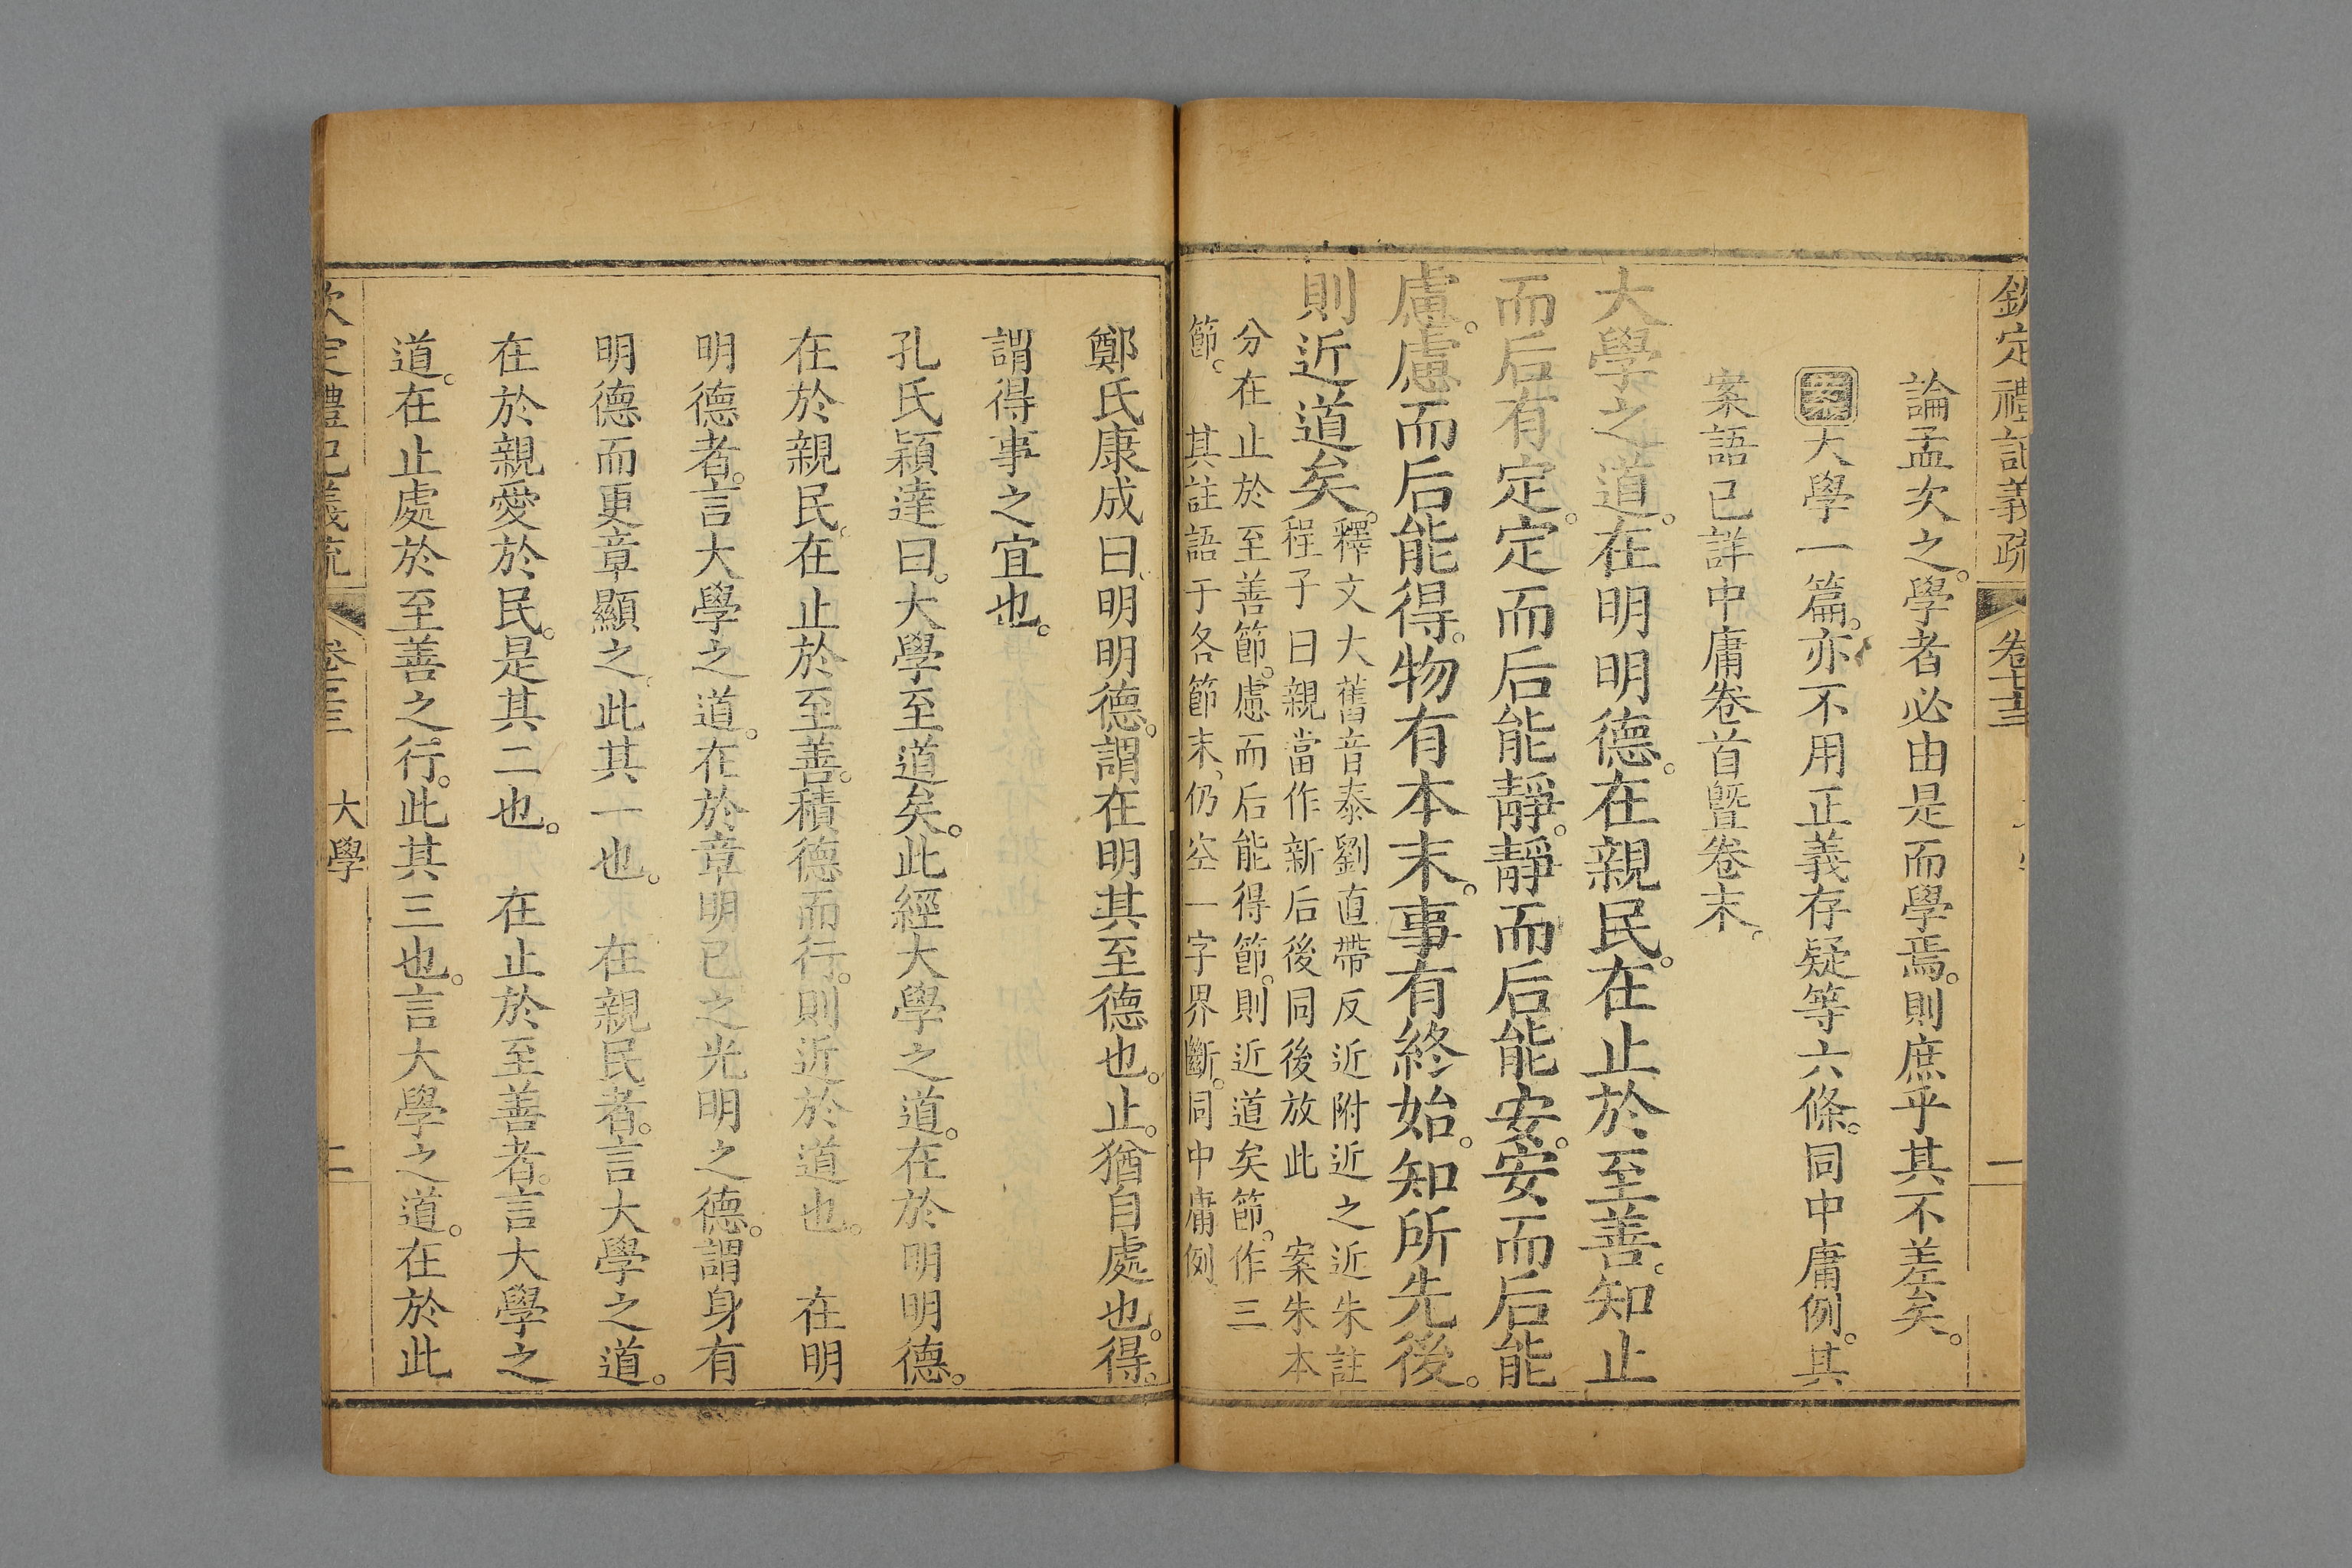 欽定禮記義疏 卷七十三 一
論孟次之。學者必由是而學焉。則庶乎其不差矣。
案大學一篇。亦不用正義存疑等六條。同中庸例。其
案語已詳中庸卷首曁卷末。
大學之道。在明明德。在親民。在止於至善。知止
而后有定。定而后能靜。靜而后能安。安而后能
慮。慮而后能得。物有本末。事有終始。知所先後。
則近道矣。
釋文大舊音泰劉直帶反近附近之近朱註
程子曰親當作新后後同後放此 案朱本
分在止於至善節。慮而后能得節。則近道矣節。作三
節。 其註語于各節末、仍空一字界斷。同中庸例
鄭氏康成曰、明明德。謂在明其至德也。止。猶自處也。得。
謂得事之宜也。
孔氏穎達曰。大學至道矣。此經大學之道。在於明明德。
在於親民。在止於至善。積德而行。則近於道也。 在明
明德者。言大學之道。在於章明已之光明之德。謂身有
明德而更章顯之。此其一也。 在親民者。言大學之道。
在於親愛於民。是其二也。 在止於至善者。言大學之
道。在止處於至善之行。此其三也。言大學之道。在於此
欽定禮記義疏 卷七十三 大學 二